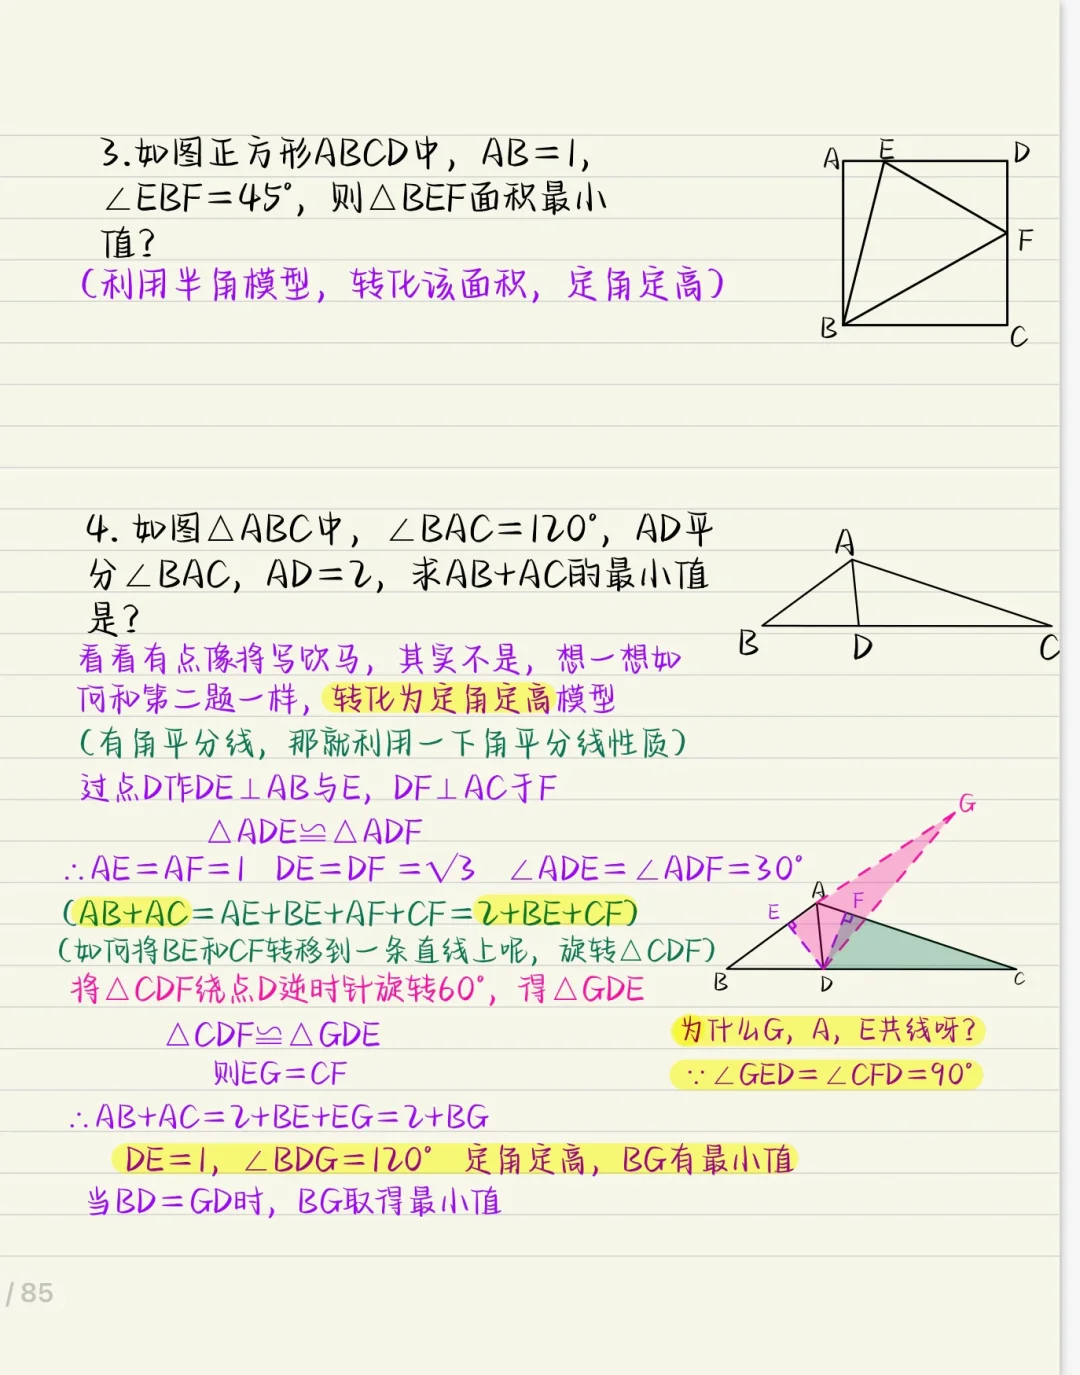 3.如图正方形ABCD中，AB=1，
∠EBF=45°，则△BEF面积最小
值?
(利用半角模型，转化该面积，定角定高)
A E D
F
B C
4. 如图△ABC中，∠BAC=120°，AD平
分∠BAC，AD=2，求AB+AC的最小值
是?
A
B D C
看看有点像将军饮马，其实不是，想一想如
何和第二题一样，转化为定角定高模型
(有角平分线，那就利用一下角平分线性质)
过点D作DE⊥AB与E，DF⊥AC于F
△ADE≌△ADF
∴AE=AF=1 DE=DF=√3 ∠ADE=∠ADF=30°
(AB+AC=AE+BE+AF+CF=2+BE+CF)
(如何将BE和CF转移到一条直线上呢，旋转△CDF)
将△CDF绕点D逆时针旋转60°，得△GDE
△CDF≌△GDE
则EG=CF
∴AB+AC=2+BE+EG=2+BG
DE=1，∠BDG=120° 定角定高，BG有最小值
当BD=GD时，BG取得最小值
G
A F
E
B D C
为什么G，A，E共线呀?
∵∠GED=∠CFD=90°
/85